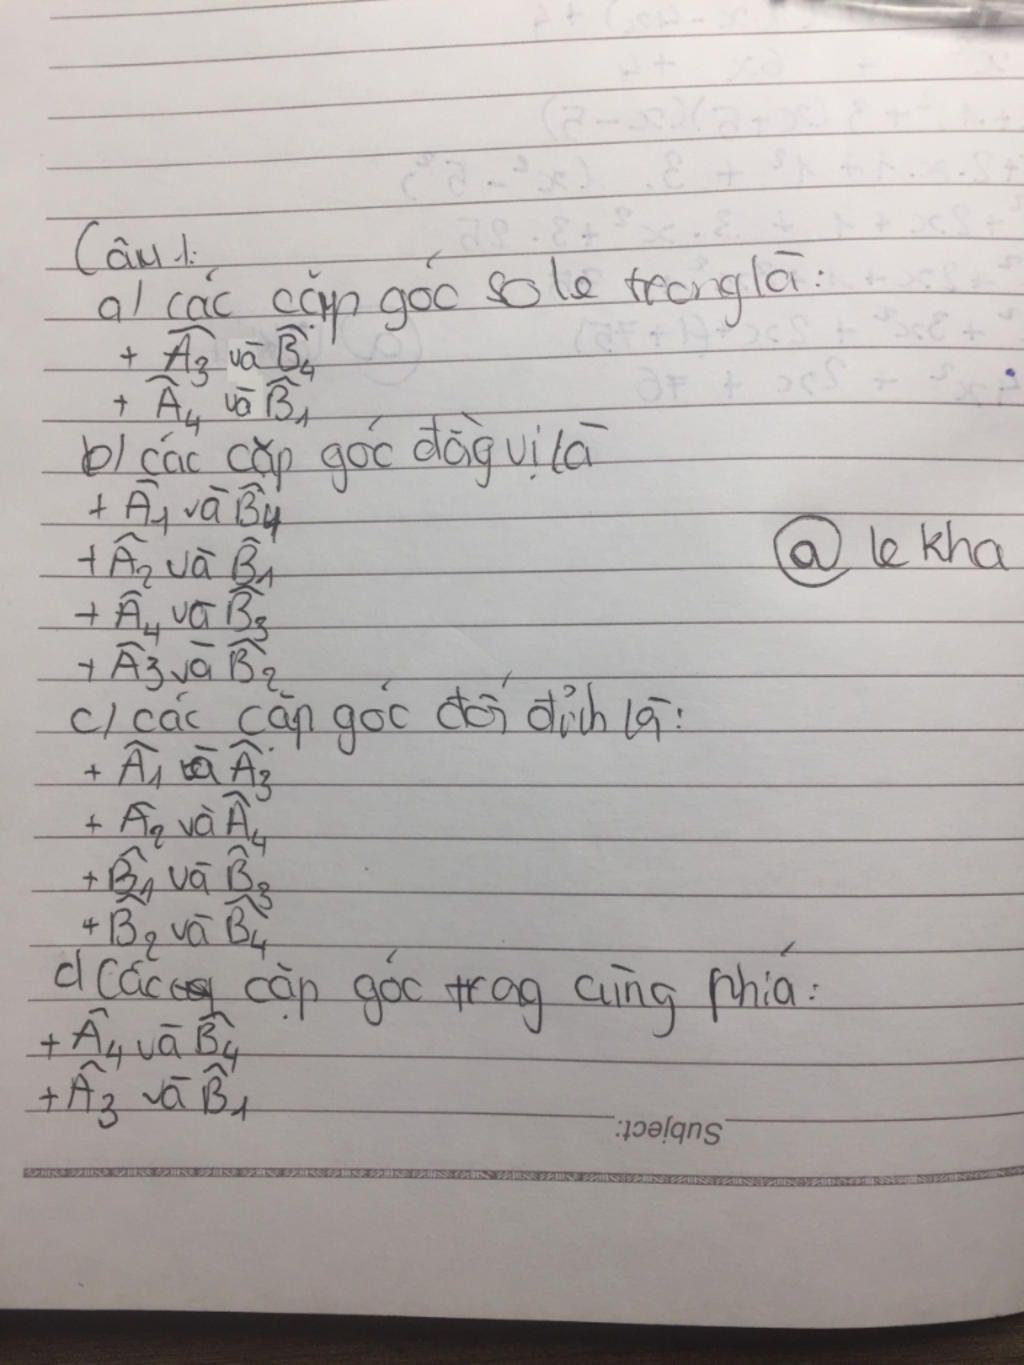 Câu 1:
a) các cặp góc so le trong là:
+ Â3 và B̂4
+ Â4 và B̂1
b) các cặp góc đồg vị là
+ Â1 và B̂4
+ Â2 và B̂1
+ Â4 và B̂3
+ Â3 và B̂2
@ le kha
c) các cặp góc đối đỉnh là:
+ Â1 và Â3
+ Â2 và Â4
+ B̂1 và B̂3
+ B̂2 và B̂4
d) Các cặp góc trog cùng phía:
+ Â4 và B̂4
+ Â3 và B̂1
Subject: